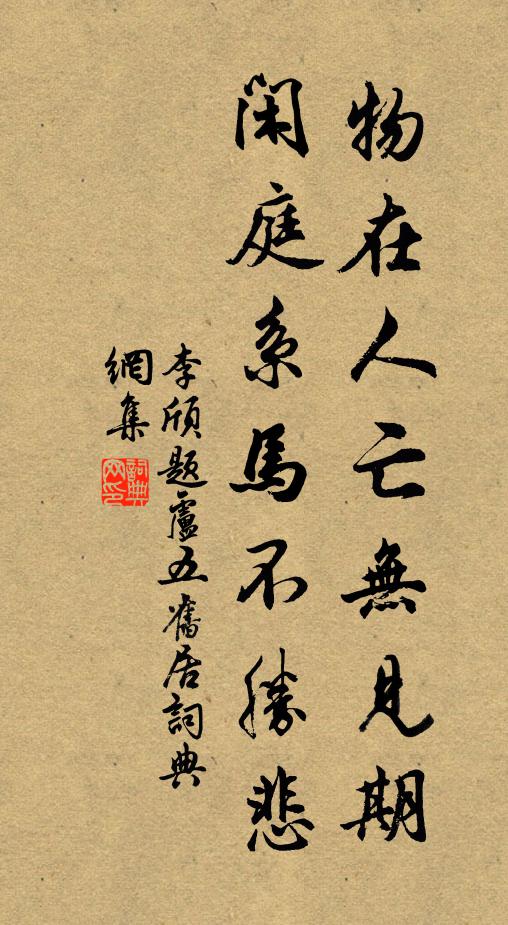 物在人亡無見期
閑庭系馬不勝悲
李頎題盧五舊居詞典
網集
詞典
网印